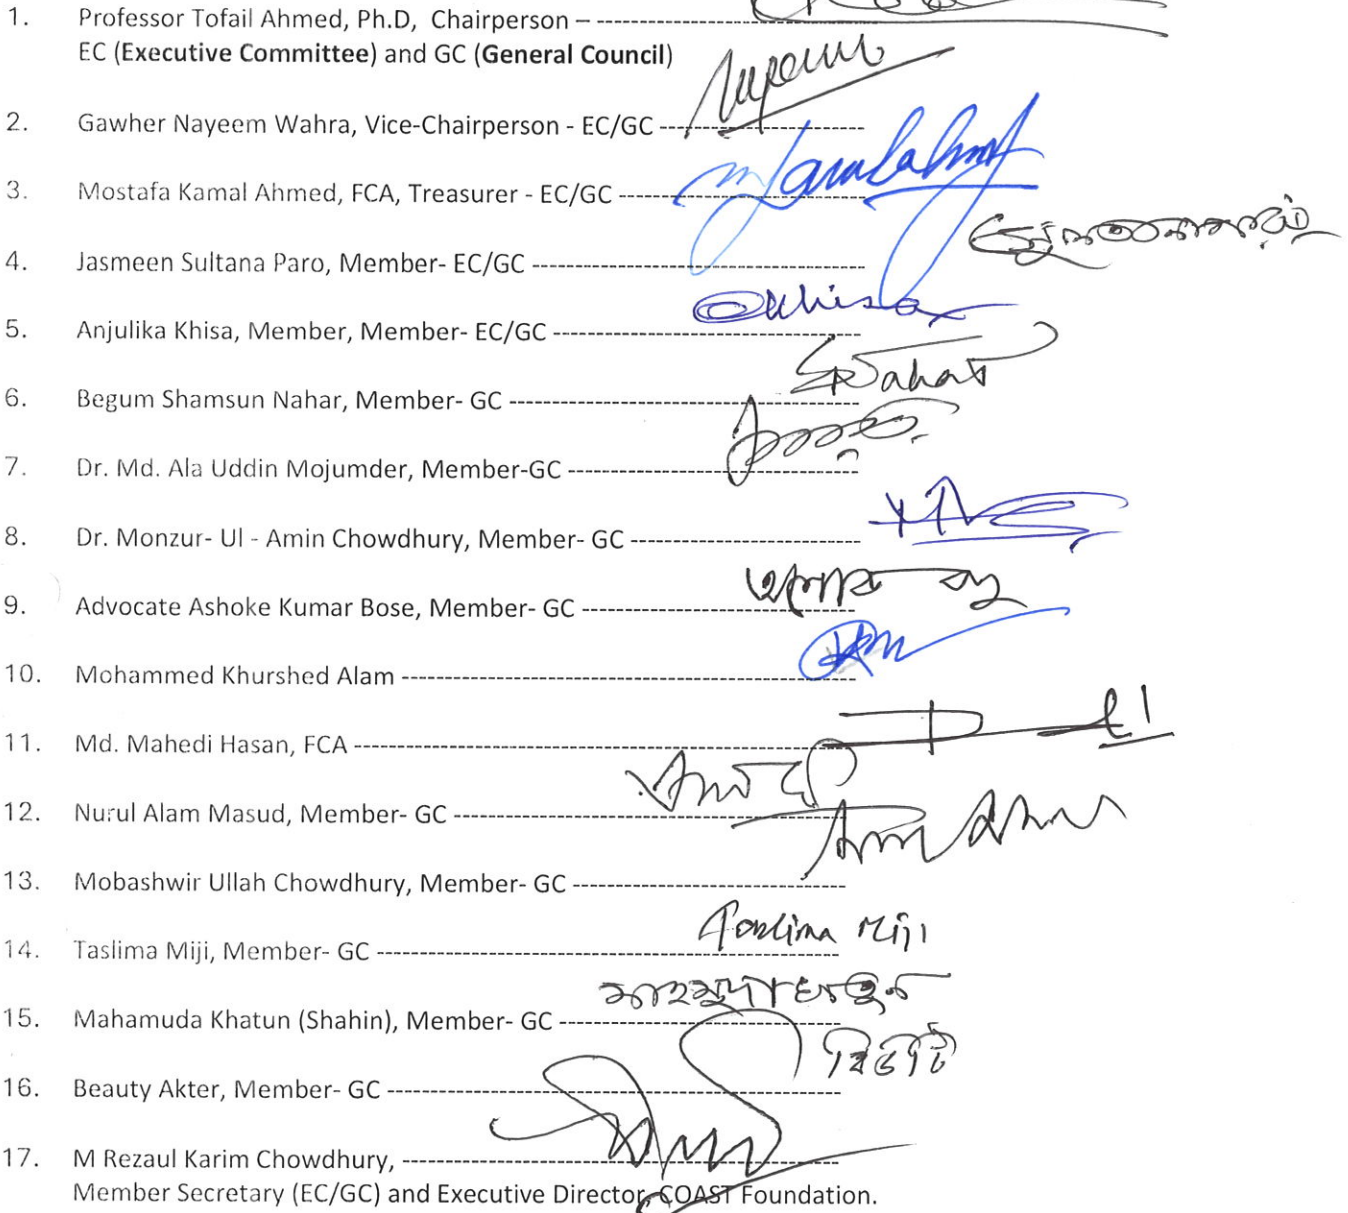 1. Professor Tofail Ahmed, Ph.D, Chairperson – ----------------------
EC (Executive Committee) and GC (General Council)
Nayeem
2. Gawher Nayeem Wahra, Vice-Chairperson - EC/GC ------------------------
3. Mostafa Kamal Ahmed, FCA, Treasurer - EC/GC ----------------------------
4. Jasmeen Sultana Paro, Member- EC/GC --------------------------------------
Khisa
5. Anjulika Khisa, Member, Member- EC/GC ------------------------------------
Nahar
6. Begum Shamsun Nahar, Member- GC -----------------------------------------
7. Dr. Md. Ala Uddin Mojumder, Member-GC ----------------------------------
8. Dr. Monzur- Ul - Amin Chowdhury, Member- GC ---------------------------
অশোক বসু
9. Advocate Ashoke Kumar Bose, Member- GC --------------------------------
10. Mohammed Khurshed Alam -----------------------------------------------------
11. Md. Mahedi Hasan, FCA ----------------------------------------------------------
12. Nurul Alam Masud, Member- GC ----------------------------------------------
13. Mobashwir Ullah Chowdhury, Member- GC --------------------------------
Taslima Miji
14. Taslima Miji, Member- GC ------------------------------------------------------
মাহমুদা খাতুন
15. Mahamuda Khatun (Shahin), Member- GC ---------------------------------
বিউটি
16. Beauty Akter, Member- GC -----------------------------------------------------
17. M Rezaul Karim Chowdhury, ---------------------------------------------------
Member Secretary (EC/GC) and Executive Director, COAST Foundation.